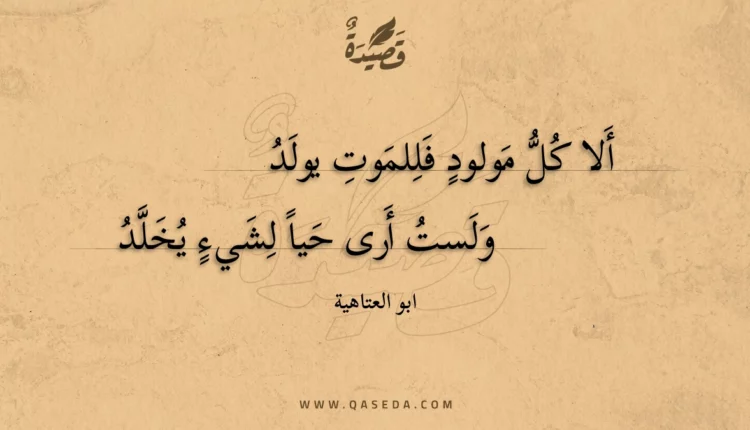 قَصِيدَةٌ
أَلا كُلُّ مَولودٍ فَلِلمَوتِ يولَدُ
وَلَستُ أَرى حَياً لِشَيءٍ يُخَلَّدُ
ابو العتاهية
WWW.QASEDA.COM